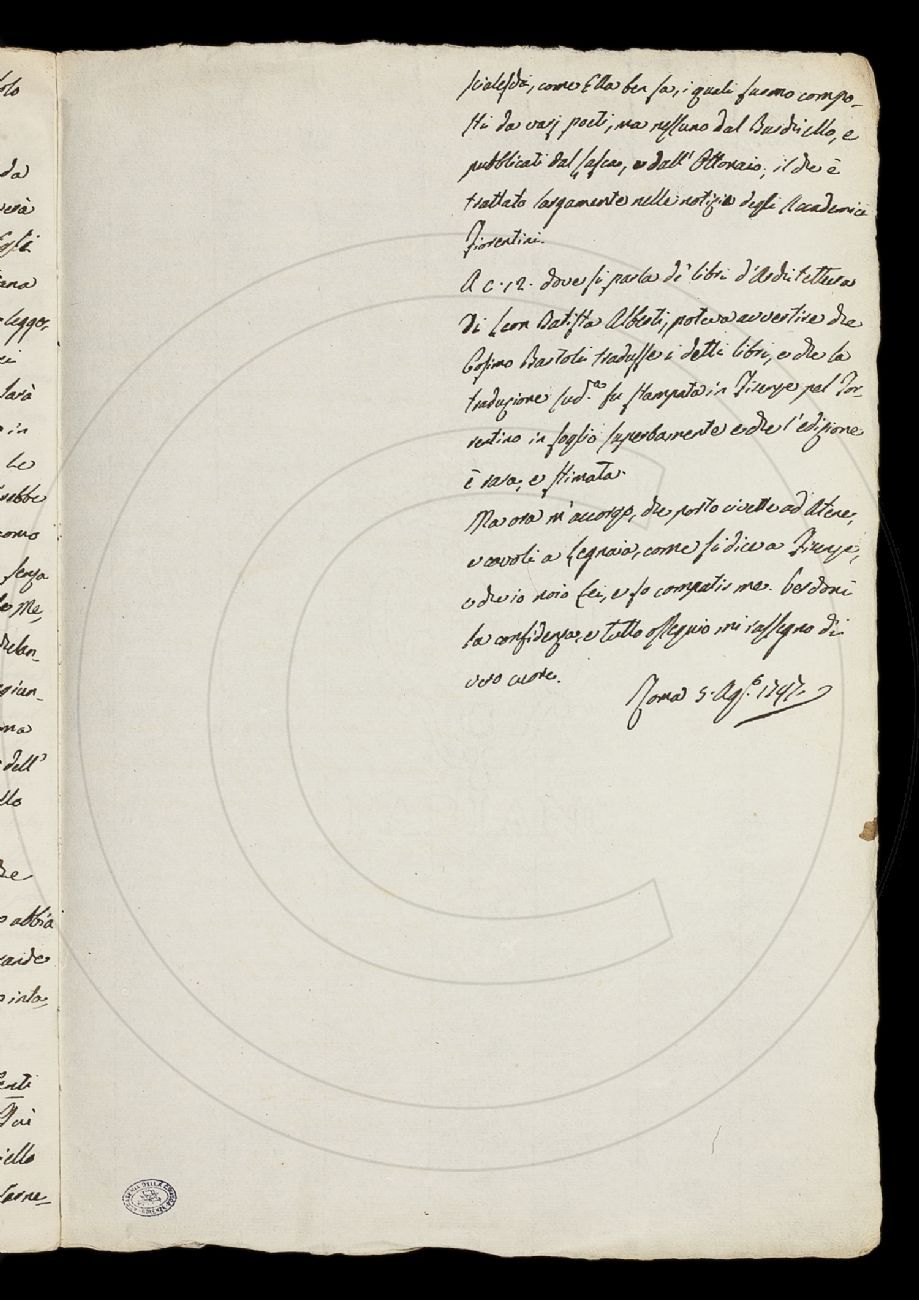 olo
da
verà
Egli
tana
legger,
ci
sarà
in
Le
rebbe
como
senza
Me,
gian,
ma
dell'
llo
che
abbia
ande
into,
enti
iello
scialesca, come Ella ben sa, i quali furono compo,
sti da varj poeti, ma nessuno dal Burchiello, e
pubblicati dal Lasca, e dall' Ottonaio; il che è
trattato largamente nelle notizie degli Accademici
Fiorentini.
A c. 12. dove si parla de' libri d'Architettura
di Leon Batista Alberti, poteva avvertire che
Cosimo Bartoli tradusse i detti libri, e che la
traduzione sud.ª fu stampata in Firenze pel Tor,
rentino in foglio superbamente e che l'edizione
è rara, e stimata.
Ma ora m'accorgo, che porto civette ad Atene,
e cavoli a Legnaia, come si dice a Firenze,
e che io noio Lei, e fo compatir me. Perdoni
la confidenza, e tutto ossequio mi rassegno di
vero cuore.
Roma 5. Ag.º 1747.